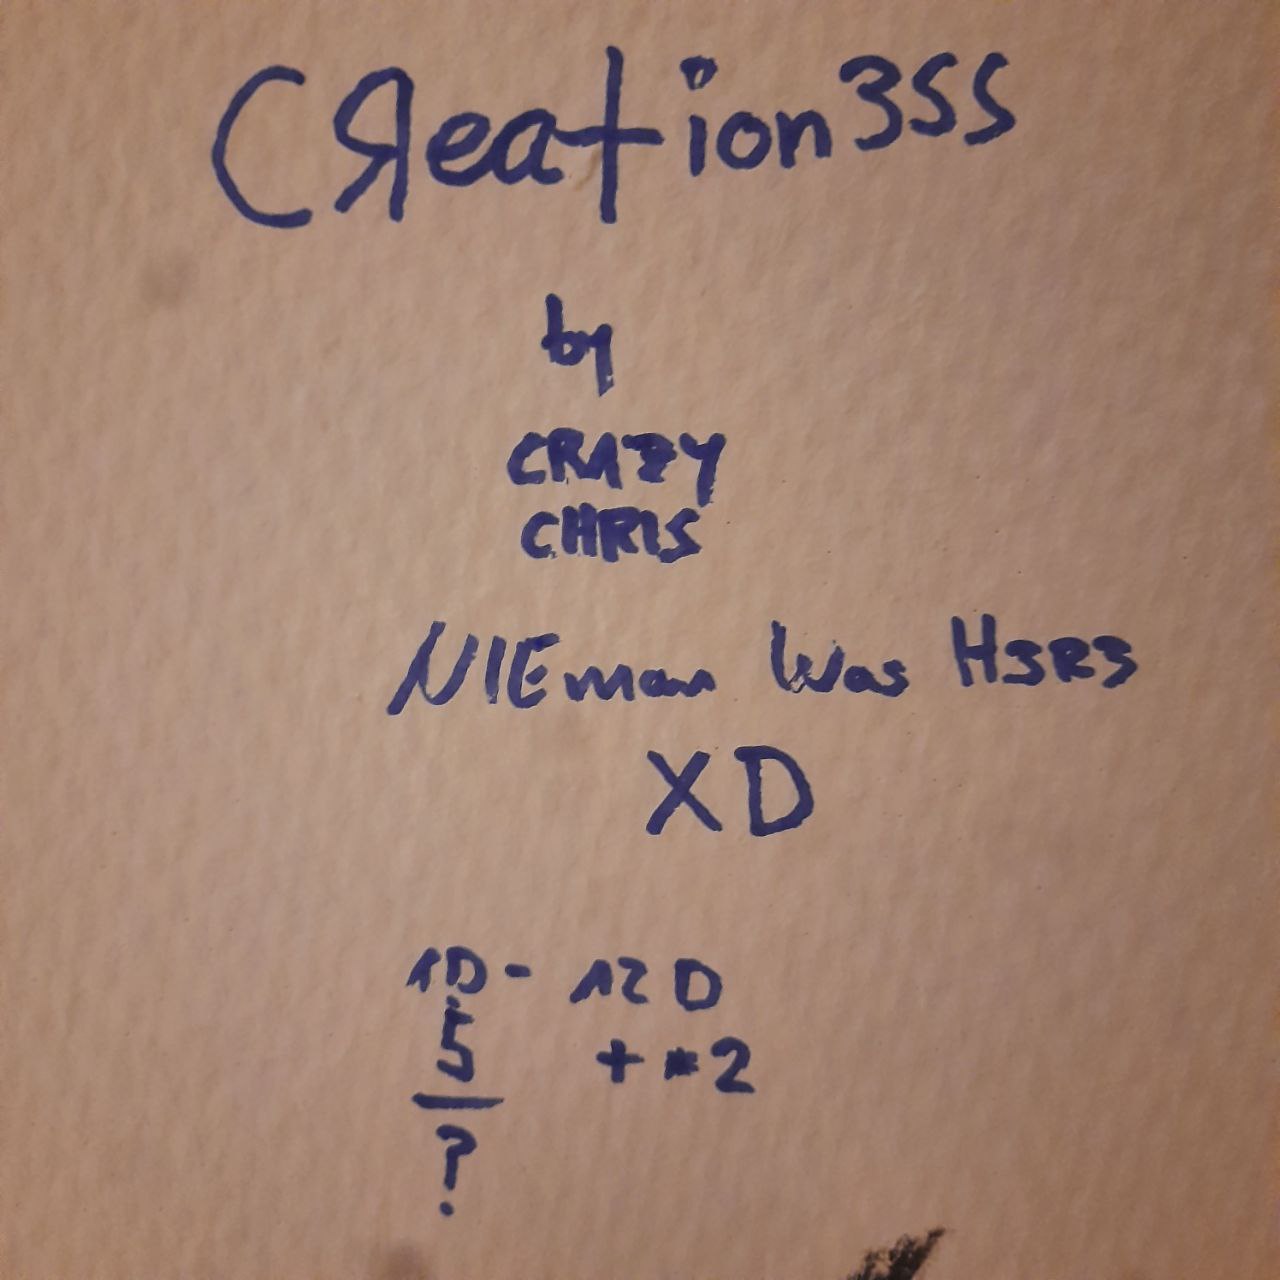 CЯeation3SS
by
CRAZY
CHRIS
NIEman Was H3R3
XD
1D- 12D
5 + *2
?